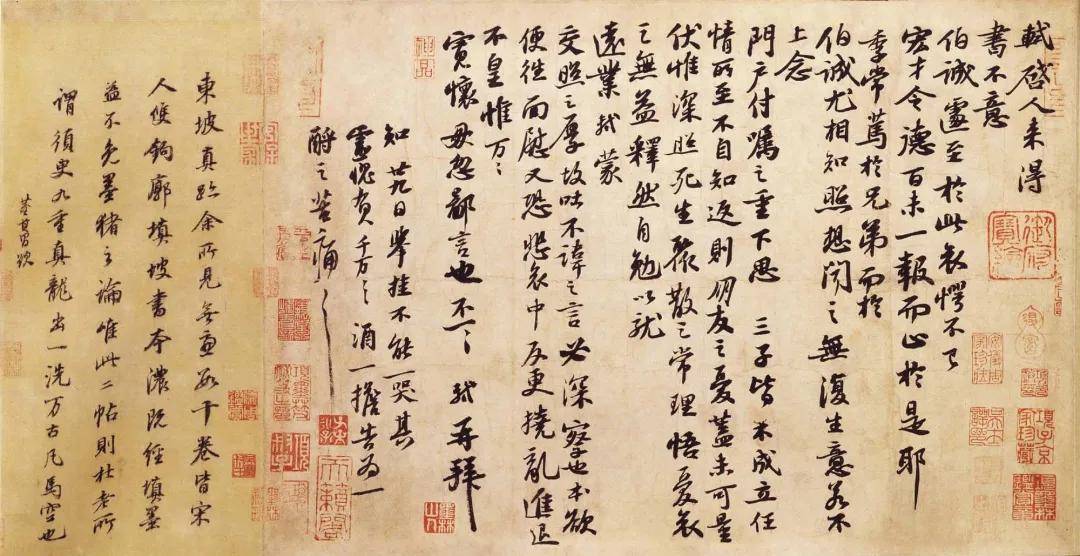 軾啓人来得
書不意
伯誠遽至於此哀愕不已
宏才令德百未一報而止於是耶
季常篤於兄弟而於
伯誠尤相知照想聞之無復生意若不
上念
門户付囑之重下思三子皆不成立任
情所至不自知返則朋友之憂蓋未可量
伏惟深照死生聚散之常理悟憂哀
之無益釋然自勉以就
遠業軾蒙
交照之厚故吐不諱之言必深察也本欲
便往面慰又恐悲哀中反更撓亂進退
不皇惟万〻
寬懷毋忽鄙言也不一〻軾再拜
知廿九日舉挂不能一哭其
靈愧負千万〻酒一擔告為一
酹之苦痛〻
神品
項子京家珍藏
天籟閣
墨林山人
東坡真跡余所見無慮數十卷皆宋
人雙鉤廓填坡書本濃既經填墨
益不免墨猪之論唯此二帖則杜老所
謂須臾九重真龍出一洗万古凡馬空也
董其昌跋